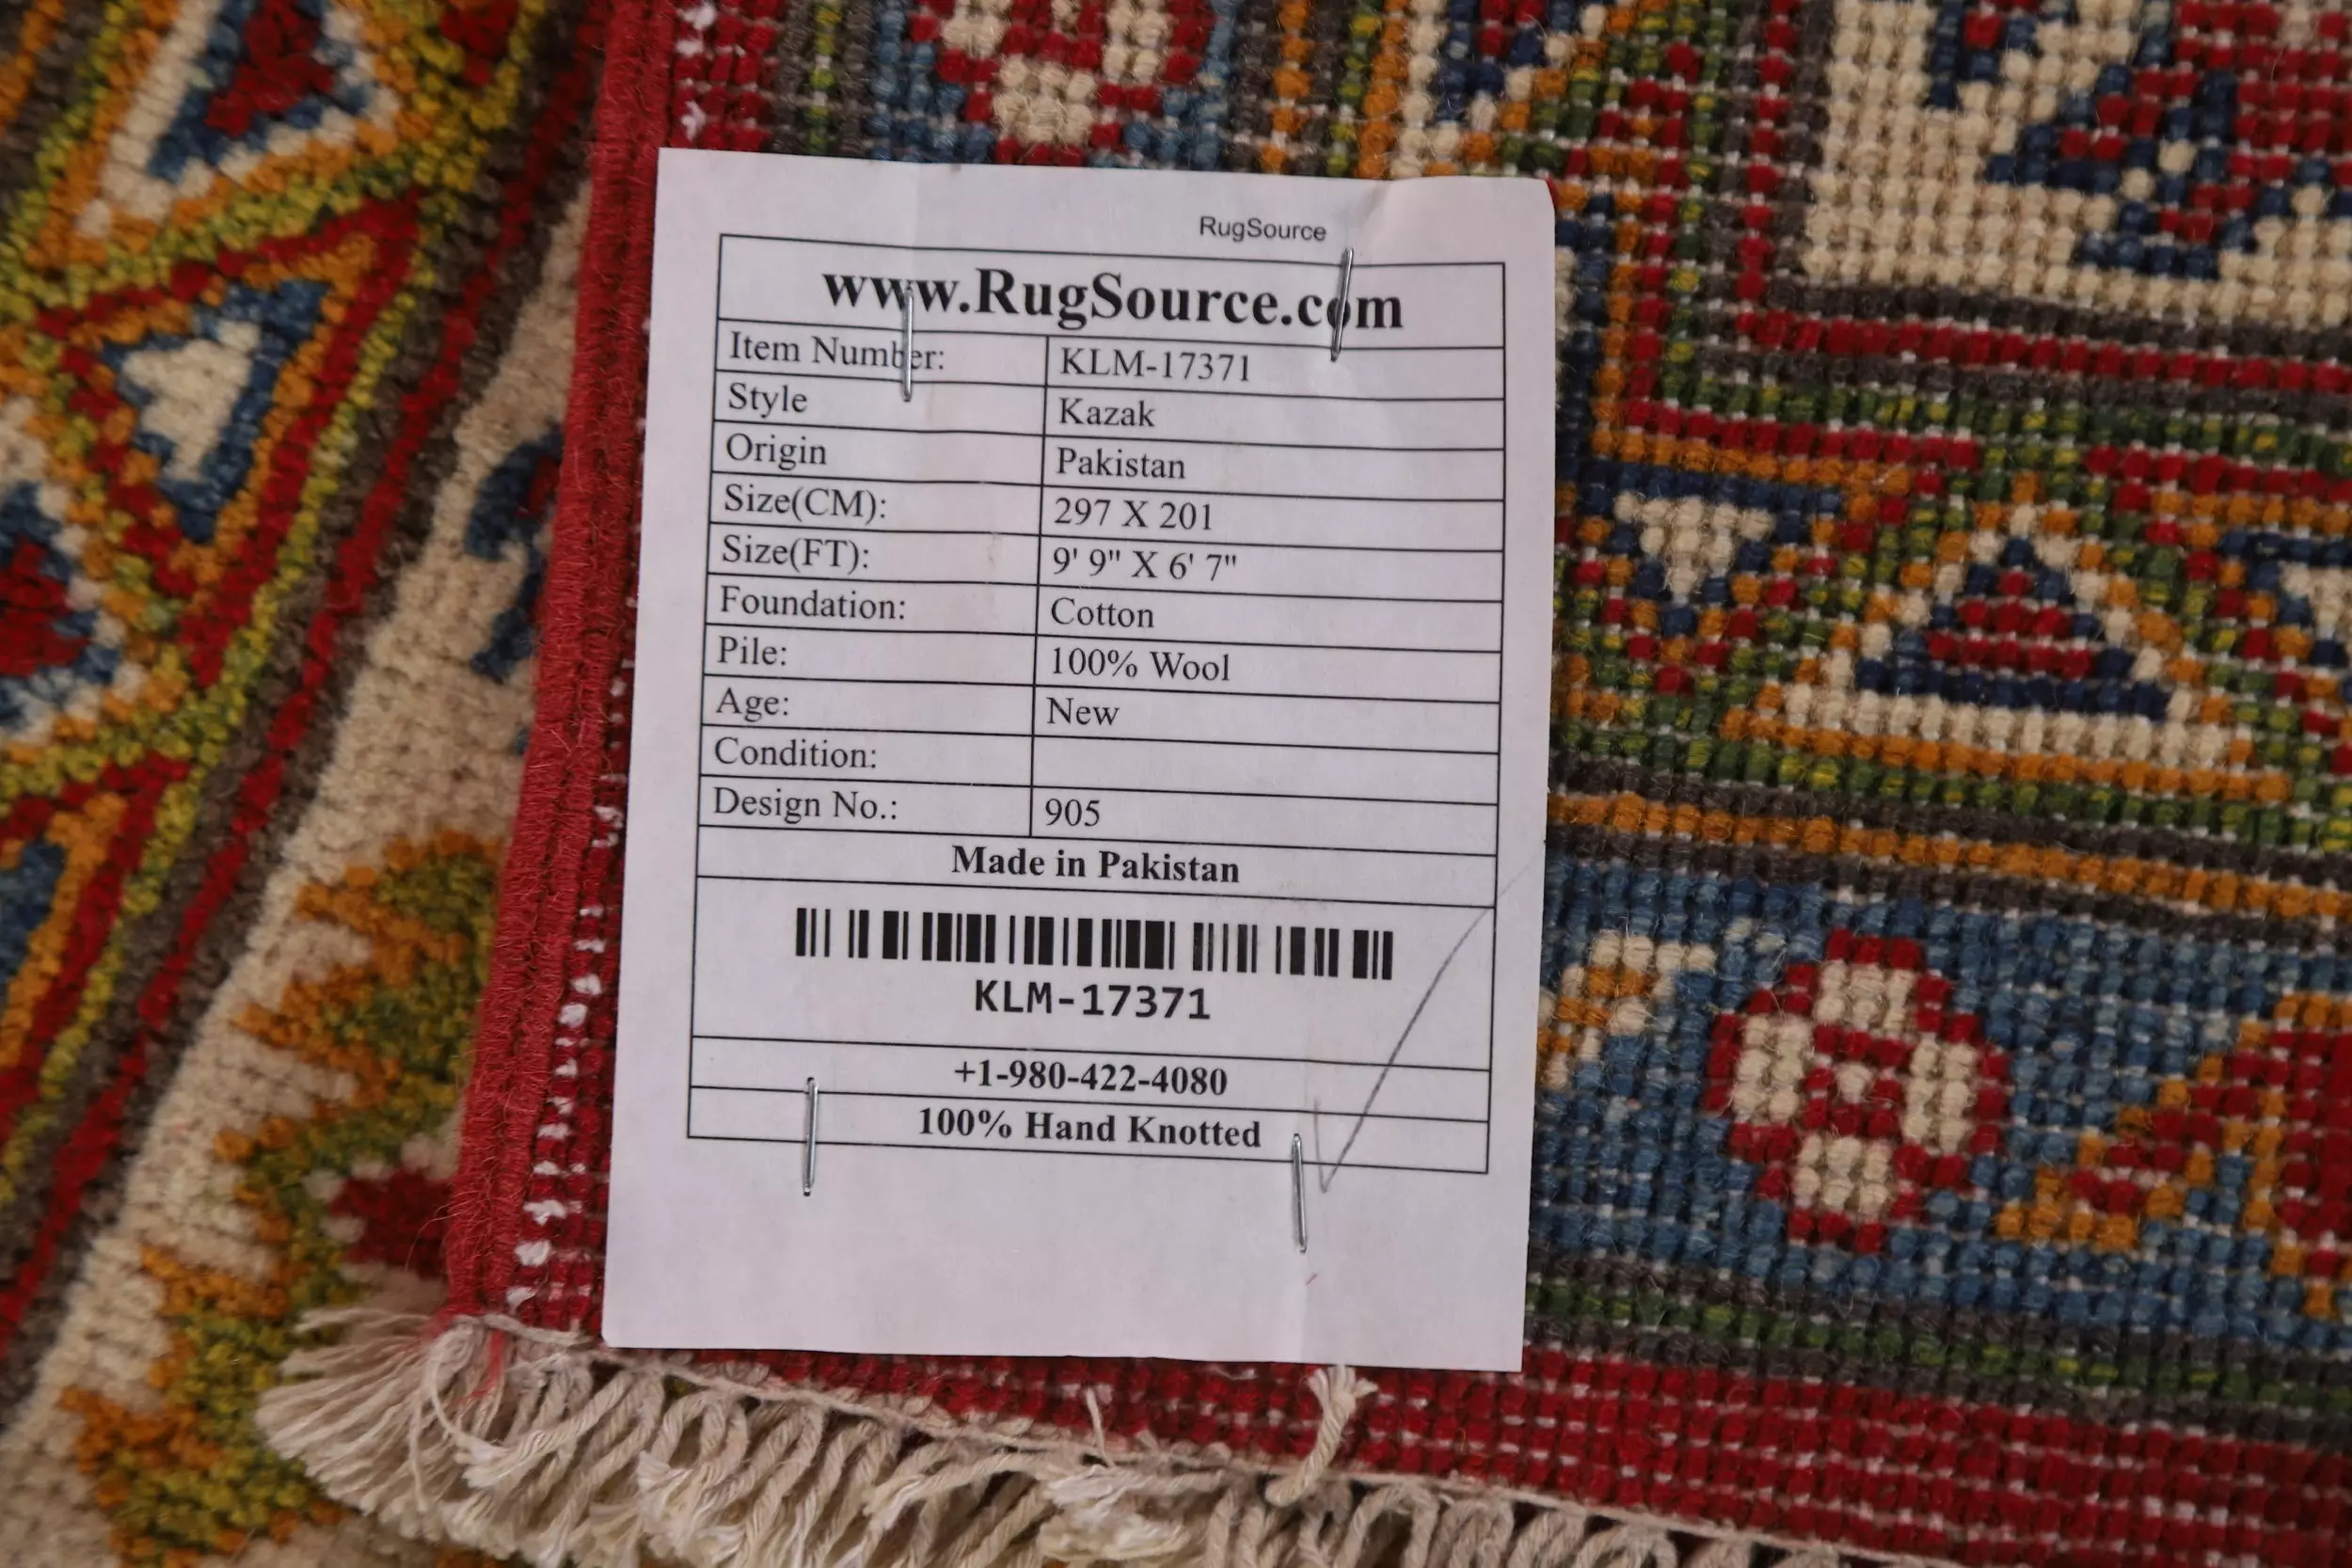 RugSource
www.RugSource.com
Item Number: KLM-17371
Style Kazak
Origin Pakistan
Size(CM): 297 X 201
Size(FT): 9' 9" X 6' 7"
Foundation: Cotton
Pile: 100% Wool
Age: New
Condition:
Design No.: 905
Made in Pakistan
KLM-17371
+1-980-422-4080
100% Hand Knotted